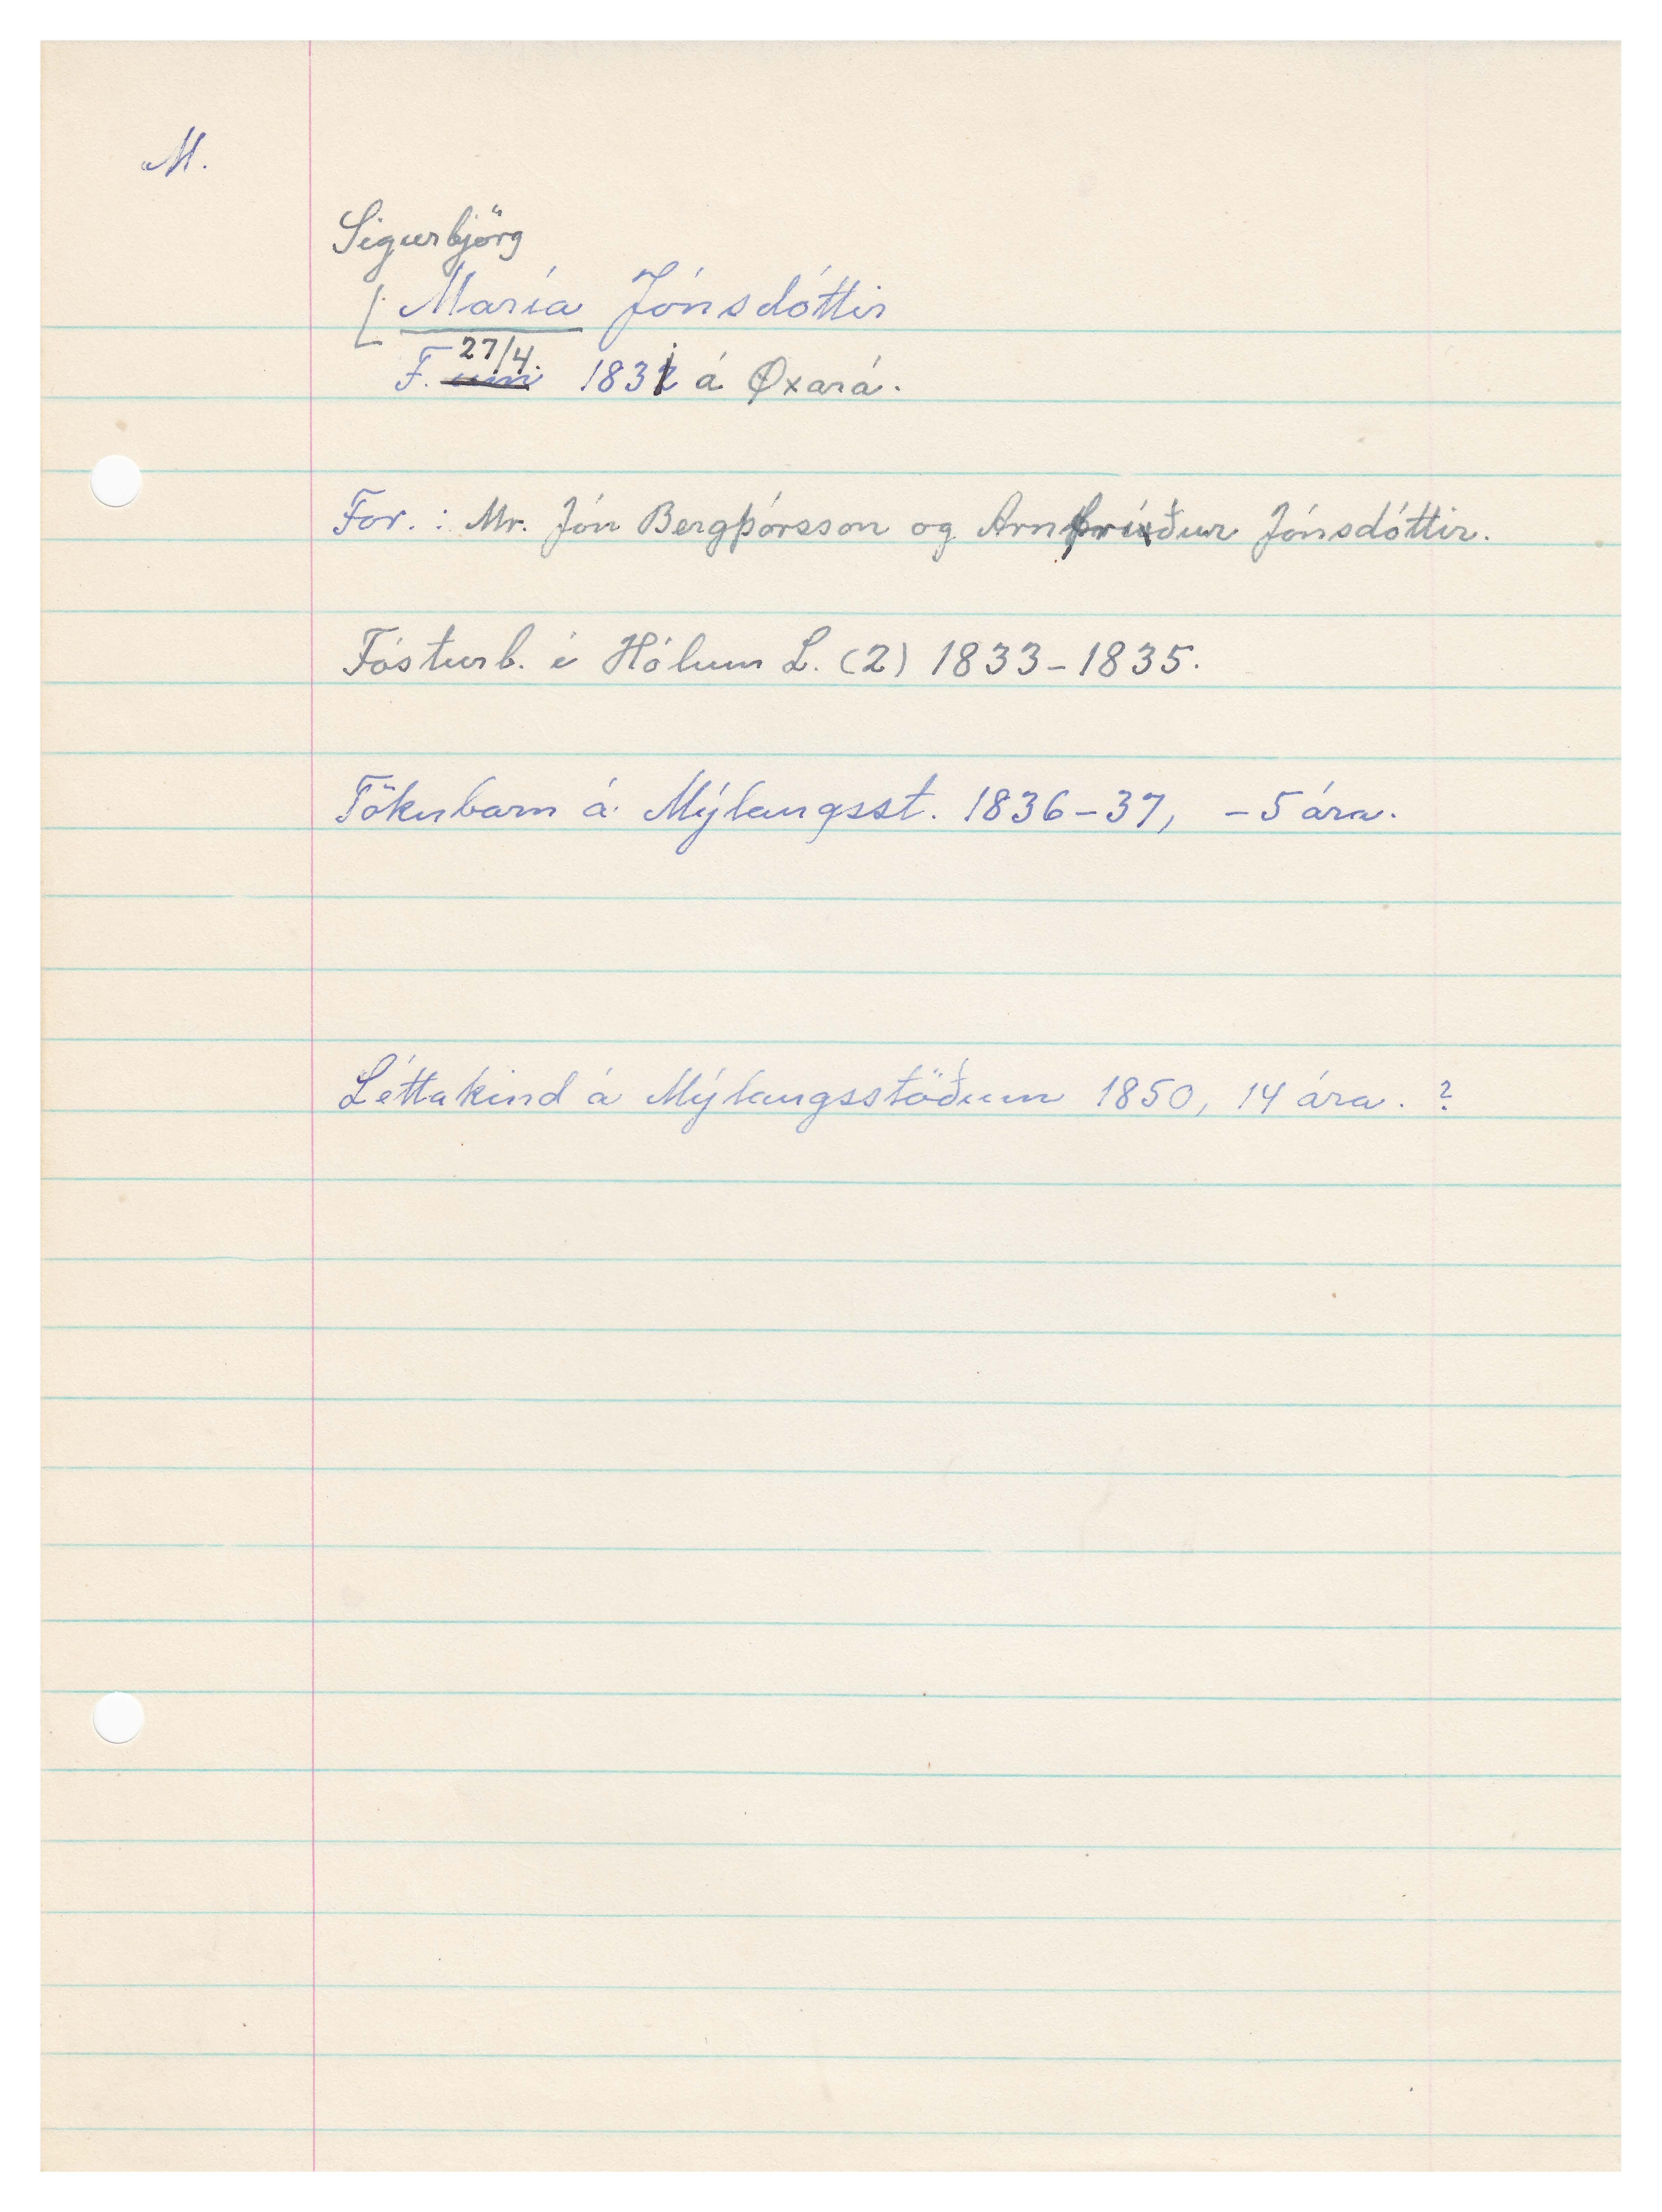 M.
Sigurbjörg
María Jónsdóttir
F. 27/4. 1831 á Øxará.
For.: Mr. Jón Bergþórsson og Arnþrúður Jónsdóttir.
Fósturb. í Hólum L. (2) 1833-1835.
Tökubarn á Mýlaugsst. 1836-37, - 5 ára.
Léttakind á Mýlaugsstöðum 1850, 14 ára. ?